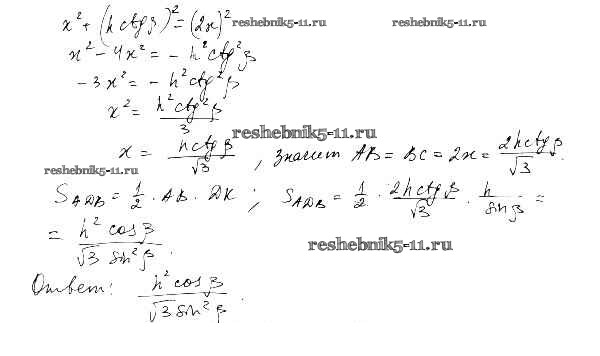 x² + (h ctg β)² = (2x)²
reshebnik5-11.ru reshebnik5-11.ru
x² - 4x² = - h² ctg² β
- 3x² = - h² ctg² β
x² = h² ctg² β / 3
reshebnik5-11.ru
x = h ctg β / √3 , значит AB = BC = 2x = 2h ctg β / √3 .
reshebnik5-11.ru
S_ADB = 1/2 · AB · DK ; S_ADB = 1/2 · 2h ctg β / √3 · h / sin β =
= h² cos β / √3 sin² β .
reshebnik5-11.ru
Ответ: h² cos β / √3 sin² β .